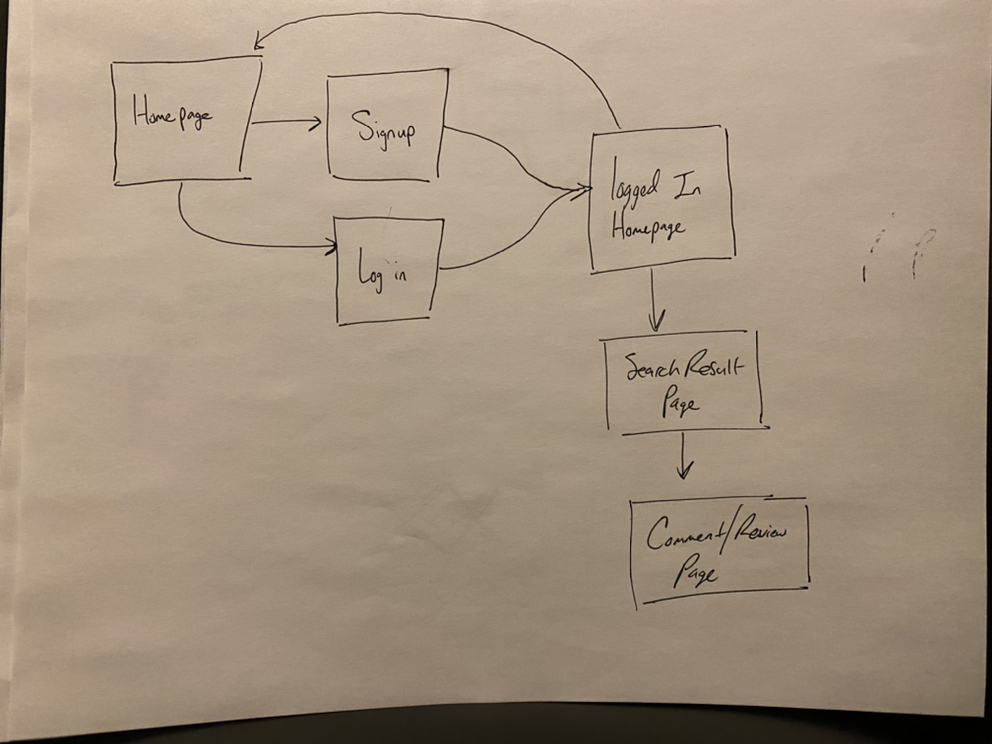 Homepage
Signup
Log in
logged In
Homepage
Search Result
Page
Comment/Review
Page